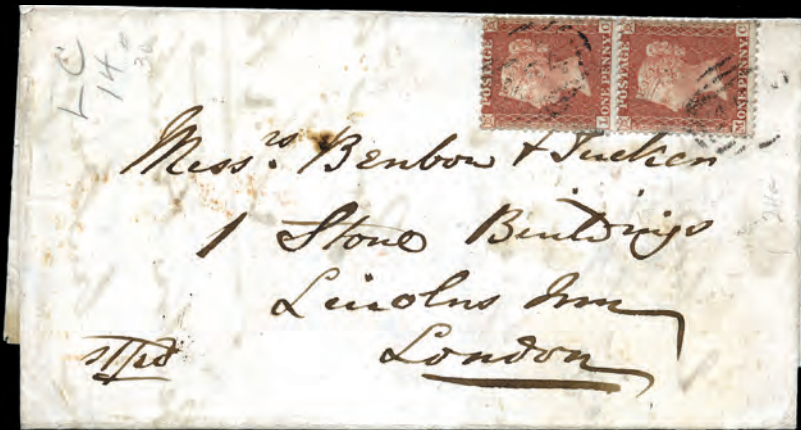 LC
14
30
POSTAGE
ONE PENNY
POSTAGE
ONE PENNY
Messrs. Benbow & Tucker
1 Stone Buildings
Lincolns Inn
London